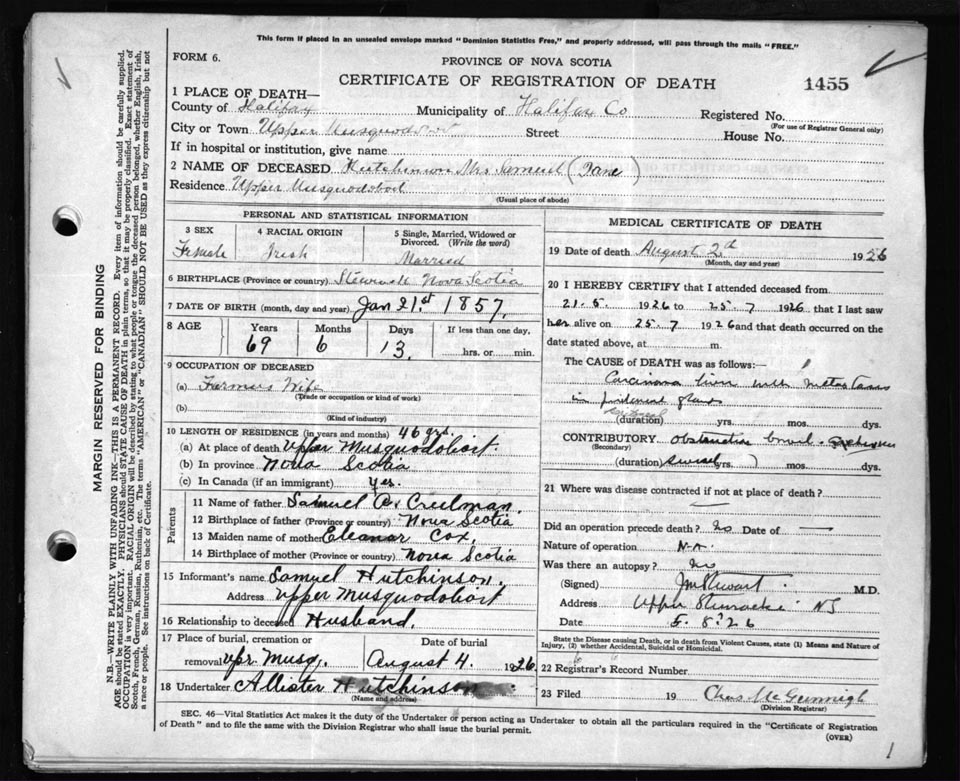 This form if placed in an unsealed envelope marked "Dominion Statistics Free," and properly addressed, will pass through the mails "FREE."
FORM 6.
PROVINCE OF NOVA SCOTIA
CERTIFICATE OF REGISTRATION OF DEATH
1455
1 PLACE OF DEATH—
County of Halifax Municipality of Halifax Co Registered No.
(For use of Registrar General only)
City or Town Upper Musquodoboit Street House No.
If in hospital or institution, give name
2 NAME OF DECEASED Hutchinson Mrs Samuel (Jane)
Residence Upper Musquodoboit
(Usual place of abode)
PERSONAL AND STATISTICAL INFORMATION
3 SEX 4 RACIAL ORIGIN 5 Single, Married, Widowed or Divorced. (Write the word)
Female Irish Married
6 BIRTHPLACE (Province or country) Nova Scotia
7 DATE OF BIRTH (month, day and year) Jan 21st 1857
8 AGE Years Months Days If less than one day,
69 6 13. hrs. or min.
9 OCCUPATION OF DECEASED
(a) Farmers Wife
(Trade or occupation or kind of work)
(b)
(Kind of industry)
10 LENGTH OF RESIDENCE (in years and months) 46 yrs.
(a) At place of death Upper Musquodoboit.
(b) In province Nova Scotia
(c) In Canada (if an immigrant) yes.
Parents
11 Name of father Samuel Creelman.
12 Birthplace of father (Province or country) Nova Scotia
13 Maiden name of mother Eleanar Cox,
14 Birthplace of mother (Province or country) Nova Scotia
15 Informant's name Samuel Hutchinson.
Address Upper Musquodoboit
16 Relationship to deceased Husband.
17 Place of burial, cremation or removal Upr. Musq. Date of burial August 4. 1926
18 Undertaker Allister Hutchinson
(Name and address)
MEDICAL CERTIFICATE OF DEATH
19 Date of death August 2d 1926
(Month, day and year)
20 I HEREBY CERTIFY that I attended deceased from
21. 5. 1926 to 25. 7 1926, that I last saw
her alive on 25. 7 1926 and that death occurred on
date stated above, at m.
The CAUSE of DEATH was as follows:
Carcinoma liver with metastases
in glands
(duration) yrs. mos. dys.
CONTRIBUTORY Obstruction bowel
(Secondary)
(duration) yrs. mos. dys.
21 Where was disease contracted if not at place of death?
Did an operation precede death? no Date of —
Nature of operation
Was there an autopsy? no
(Signed) Stewart M.D.
Address Upper Stewiacke NS
Date 5. 8. 26
State the Disease causing Death, or in death from Violent Causes, state (1) Means and Nature of Injury, (2) whether Accidental, Suicidal or Homicidal.
22 Registrar's Record Number
23 Filed 19 Chas McGunnigh
(Division Registrar)
SEC. 46—Vital Statistics Act makes it the duty of the Undertaker or person acting as Undertaker to obtain all the particulars required in the "Certificate of Registration
of Death" and to file the same with the Division Registrar who shall issue the burial permit.
(OVER)
1
MARGIN RESERVED FOR BINDING
N.B.—WRITE PLAINLY WITH UNFADING INK—THIS IS A PERMANENT RECORD. Every item of information should be carefully supplied.
AGE should be stated EXACTLY. PHYSICIANS should STATE CAUSE OF DEATH in plain terms, so that it may be properly classified. Exact statement of
OCCUPATION is very important. RACIAL ORIGIN will be described by stating to what people or tongue the deceased person belonged, whether English, Irish,
Scotch, French, German, Russian, Ruthenian, etc. The terms "AMERICAN" or "CANADIAN" SHOULD NOT BE USED as they express citizenship but not
a race or people. See instructions on back of Certificate.